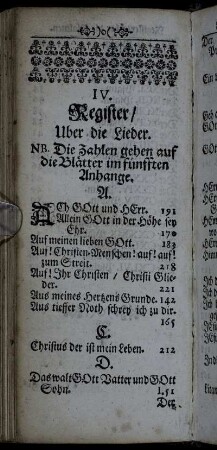 )o(
IV.
Register/
Uber die Lieder.
NB. Die Zahlen gehen auf
die Blätter im fünfften
Anhange.
A.
ACh GOtt und HErr. 191
Allein GOtt in der Höhe sey
Ehr. 170
Auf meinen lieben GOtt. 183
Auf! Christen-Menschen! auf! auf!
zum Streit. 218
Auf! Ihr Christen/ Christi Glie-
der. 221
Aus meines Hertzens Grunde. 142
Aus tieffer Noth schrey ich zu dir.
165
C.
Christus der ist mein Leben. 212
D.
Das walt GOtt Vatter und GOtt
Sohn. 151